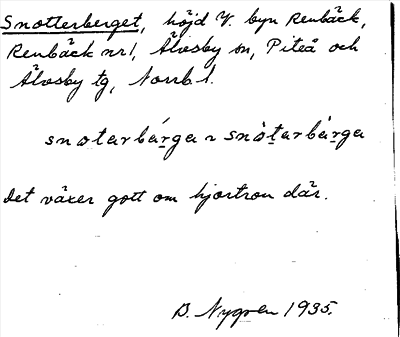 Snotterberget, höjd V. byn Renbäck,
Renbäck nr1, Älvsby sn, Piteå och
Älvsby tg, Norrb l.
snotarbárga ~ snòtarbàrga
Det växer gott om hjortron där.
B. Nygren 1935.